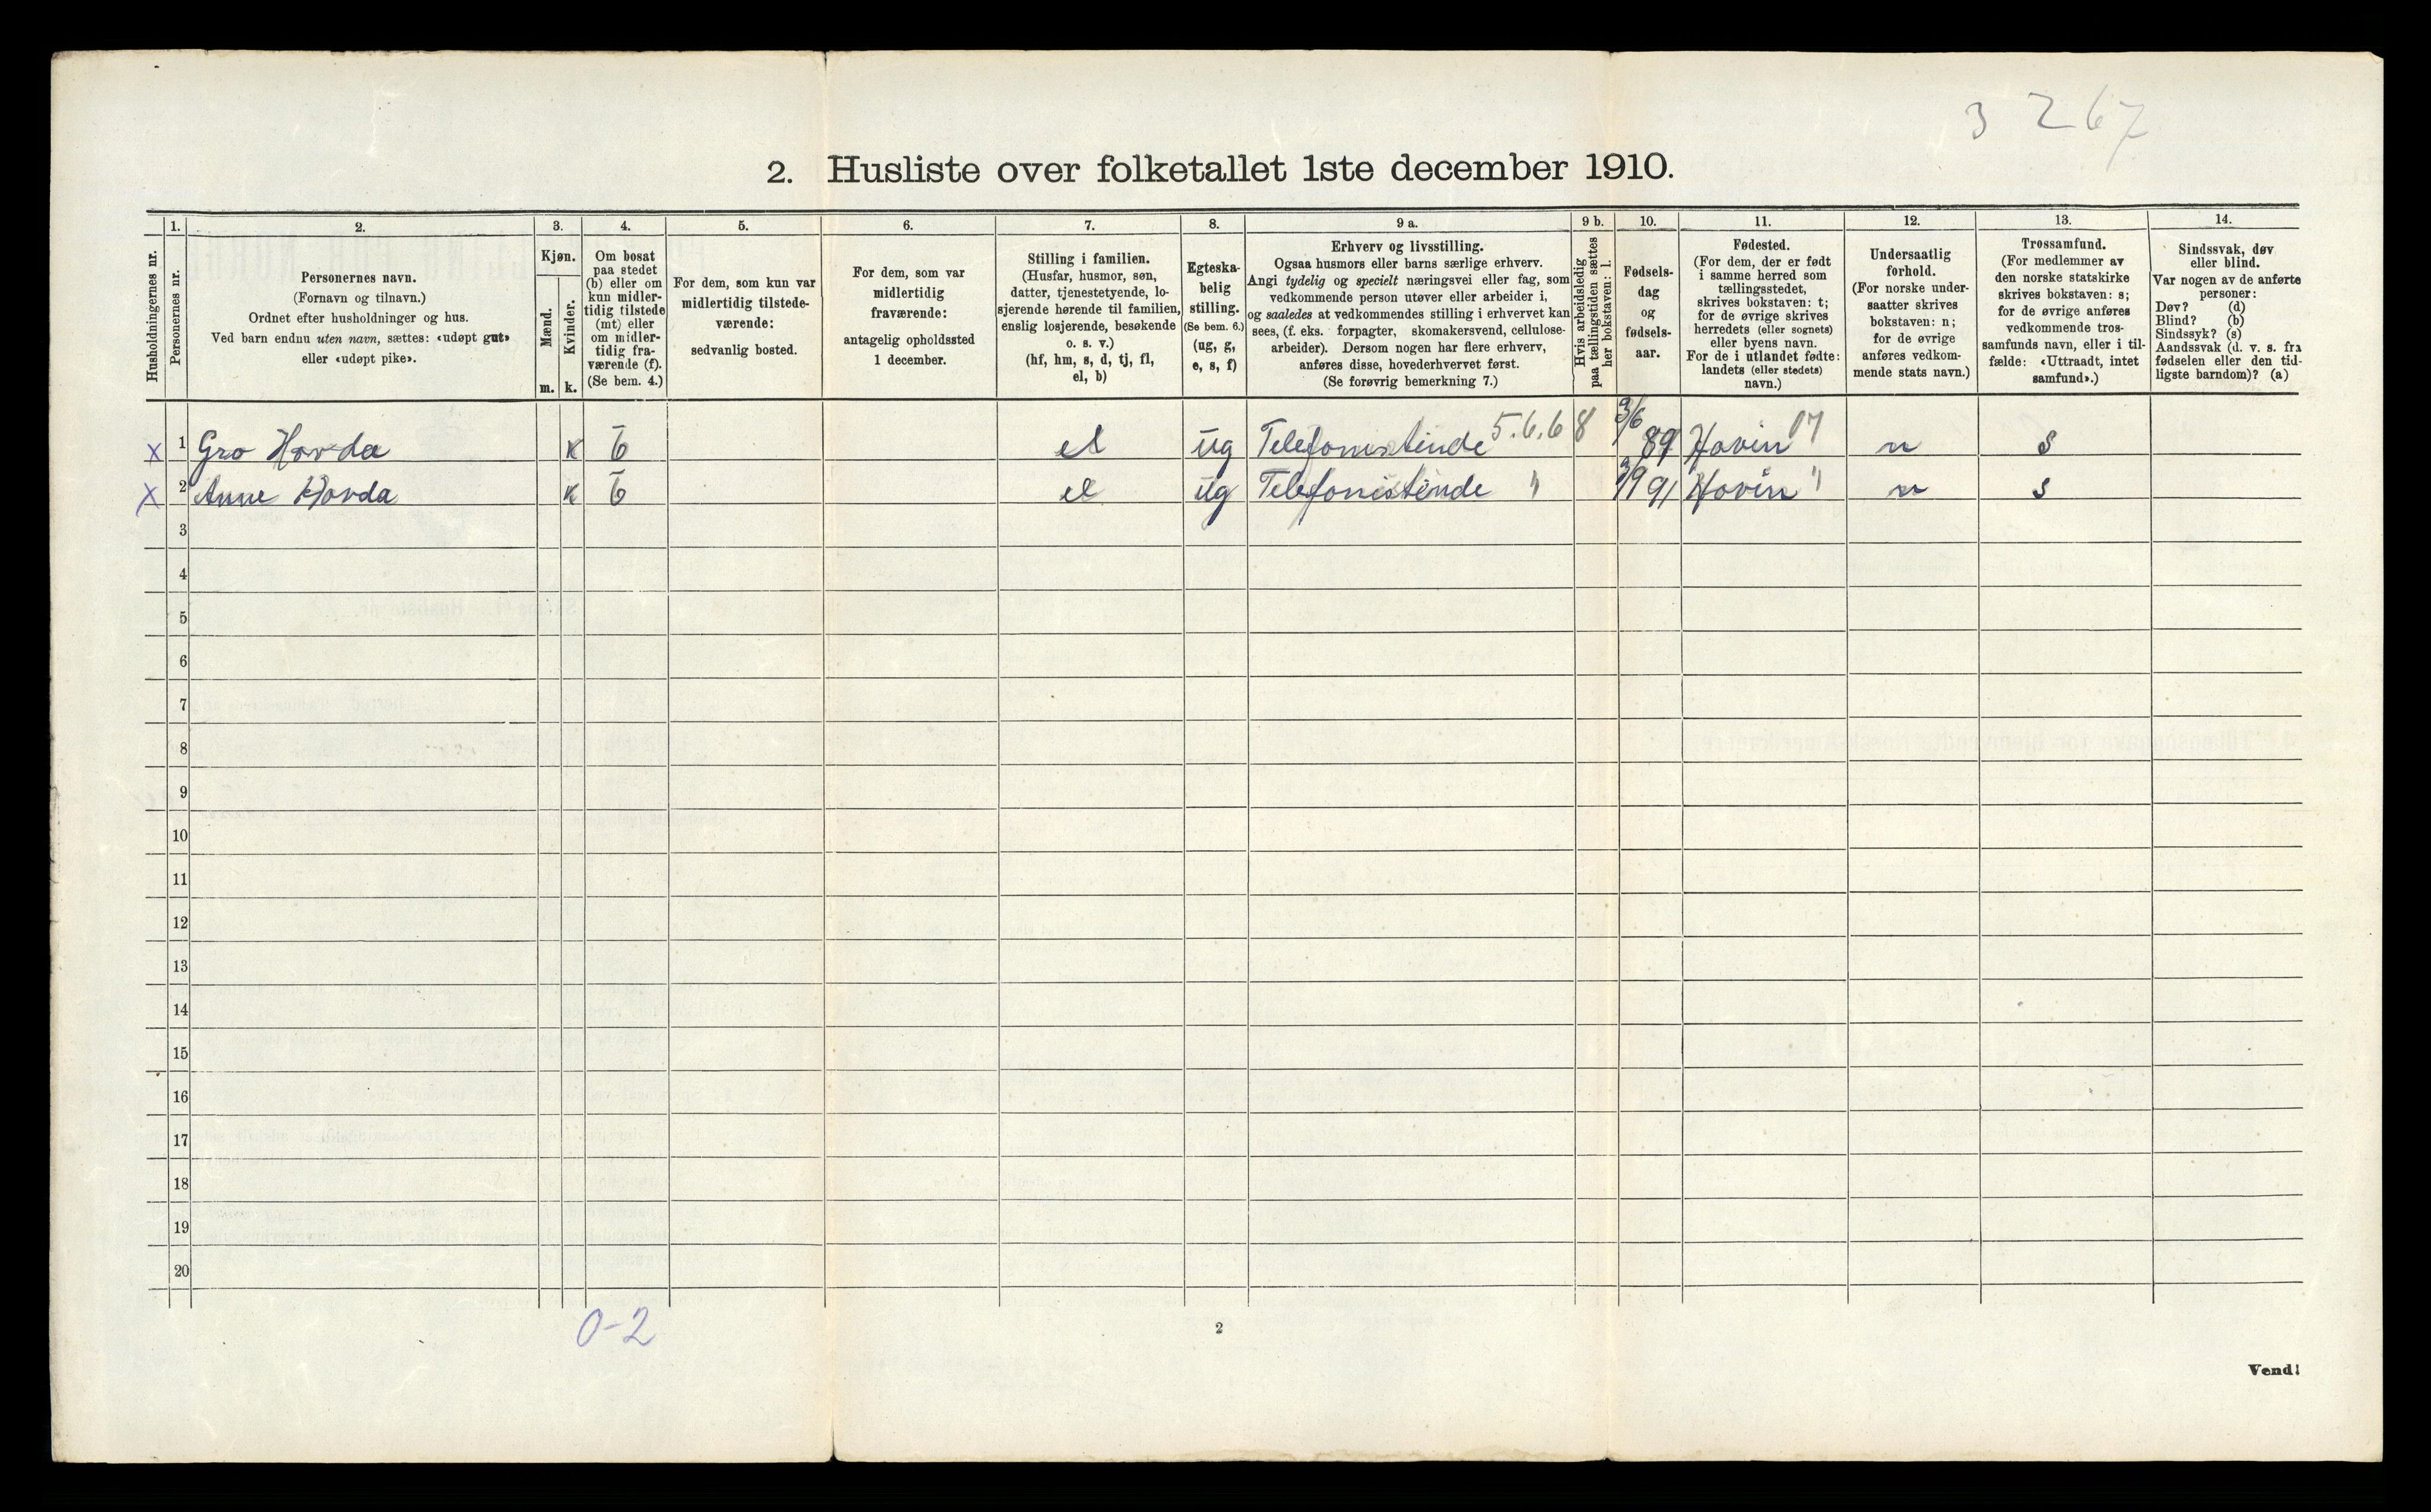 3 267
2. Husliste over folketallet 1ste december 1910.
Husholdningernes nr.
1.
Personernes nr.
2.
Personernes navn.
(Fornavn og tilnavn.)
Ordnet efter husholdninger og hus.
Ved barn endnu uten navn, sættes: «udøpt gut»
eller «udøpt pike».
3.
Kjøn.
Mænd.
m.
Kvinder.
k.
4.
Om bosat
paa stedet
(b) eller om
kun midler-
tidig tilstede
(mt) eller
om midler-
tidig fra-
værende (f).
(Se bem. 4.)
5.
For dem, som kun var
midlertidig tilstede-
værende:
sedvanlig bosted.
6.
For dem, som var
midlertidig
fraværende:
antagelig opholdssted
1 december.
7.
Stilling i familien.
(Husfar, husmor, søn,
datter, tjenestetyende, lo-
sjerende hørende til familien,
enslig losjerende, besøkende
o. s. v.)
(hf, hm, s, d, tj, fl,
el, b)
8.
Egteska-
belig
stilling.
(Se bem. 6.)
(ug, g,
e, s, f)
9 a.
Erhverv og livsstilling.
Ogsaa husmors eller barns særlige erhverv.
Angi tydelig og specielt næringsvei eller fag, som
vedkommende person utøver eller arbeider i,
og saaledes at vedkommendes stilling i erhvervet kan
sees, (f. eks. forpagter, skomakersvend, cellulose-
arbeider). Dersom nogen har flere erhverv,
anføres disse, hovederhvervet først.
(Se forøvrig bemerkning 7.)
9 b.
Hvis arbeidsledig
paa tællingstiden sættes
her bokstaven: l.
10.
Fødsels-
dag
og
fødsels-
aar.
11.
Fødested.
(For dem, der er født
i samme herred som
tællingsstedet,
skrives bokstaven: t;
for de øvrige skrives
herredets (eller sognets)
eller byens navn.
For de i utlandet fødte:
landets (eller stedets)
navn.)
12.
Undersaatlig
forhold.
(For norske under-
saatter skrives
bokstaven: n;
for de øvrige
anføres vedkom-
mende stats navn.)
13.
Trossamfund.
(For medlemmer av
den norske statskirke
skrives bokstaven: s;
for de øvrige anføres
vedkommende tros-
samfunds navn, eller i til-
fælde: «Uttraadt, intet
samfund».)
14.
Sindssvak, døv
eller blind.
Var nogen av de anførte
personer:
Døv? (d)
Blind? (b)
Sindssyk? (s)
Aandssvak (d. v. s. fra
fødselen eller den tid-
ligste barndom)? (a)
x 1 Gro Hovda K b el ug Telefonistinde 5.6.68 3/6 89 Hovin 07 n s
x 2 Anne Hovda K b el ug Telefonistinde " 3/9 91 Hovin " n s
3
4
5
6
7
8
9
10
11
12
13
14
15
16
17
18
19
20
0-2
2
Vend!